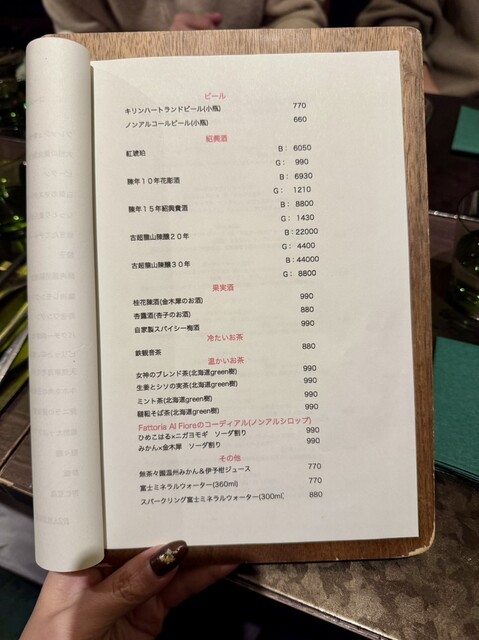 ビール
キリンハートランドビール(小瓶) 770
ノンアルコールビール(小瓶) 660
紹興酒
紅琥珀 B： 6050
G： 990
陳年１０年花彫酒 B： 6930
G： 1210
陳年１５年紹興貴酒 B： 8800
G： 1430
古越龍山陳醸２０年 B：22000
G： 4400
古越龍山陳醸３０年 B：44000
G： 8800
果実酒
桂花陳酒(金木犀のお酒) 990
杏露酒(杏子のお酒) 880
自家製スパイシー梅酒 990
冷たいお茶
鉄観音茶 880
温かいお茶
女神のブレンド茶(北海道green樹) 990
生姜とシソの実茶(北海道green樹) 990
ミント茶(北海道green樹) 990
韃靼そば茶(北海道green樹) 990
Fattoria Al Fioreのコーディアル(ノンアルシロップ)
ひめこはる×ニガヨモギ　ソーダ割り 990
みかん×金木犀　ソーダ割り 990
その他
無茶々園温州みかん＆伊予柑ジュース 770
富士ミネラルウォーター(360ml) 770
スパークリング富士ミネラルウォーター(300ml) 880